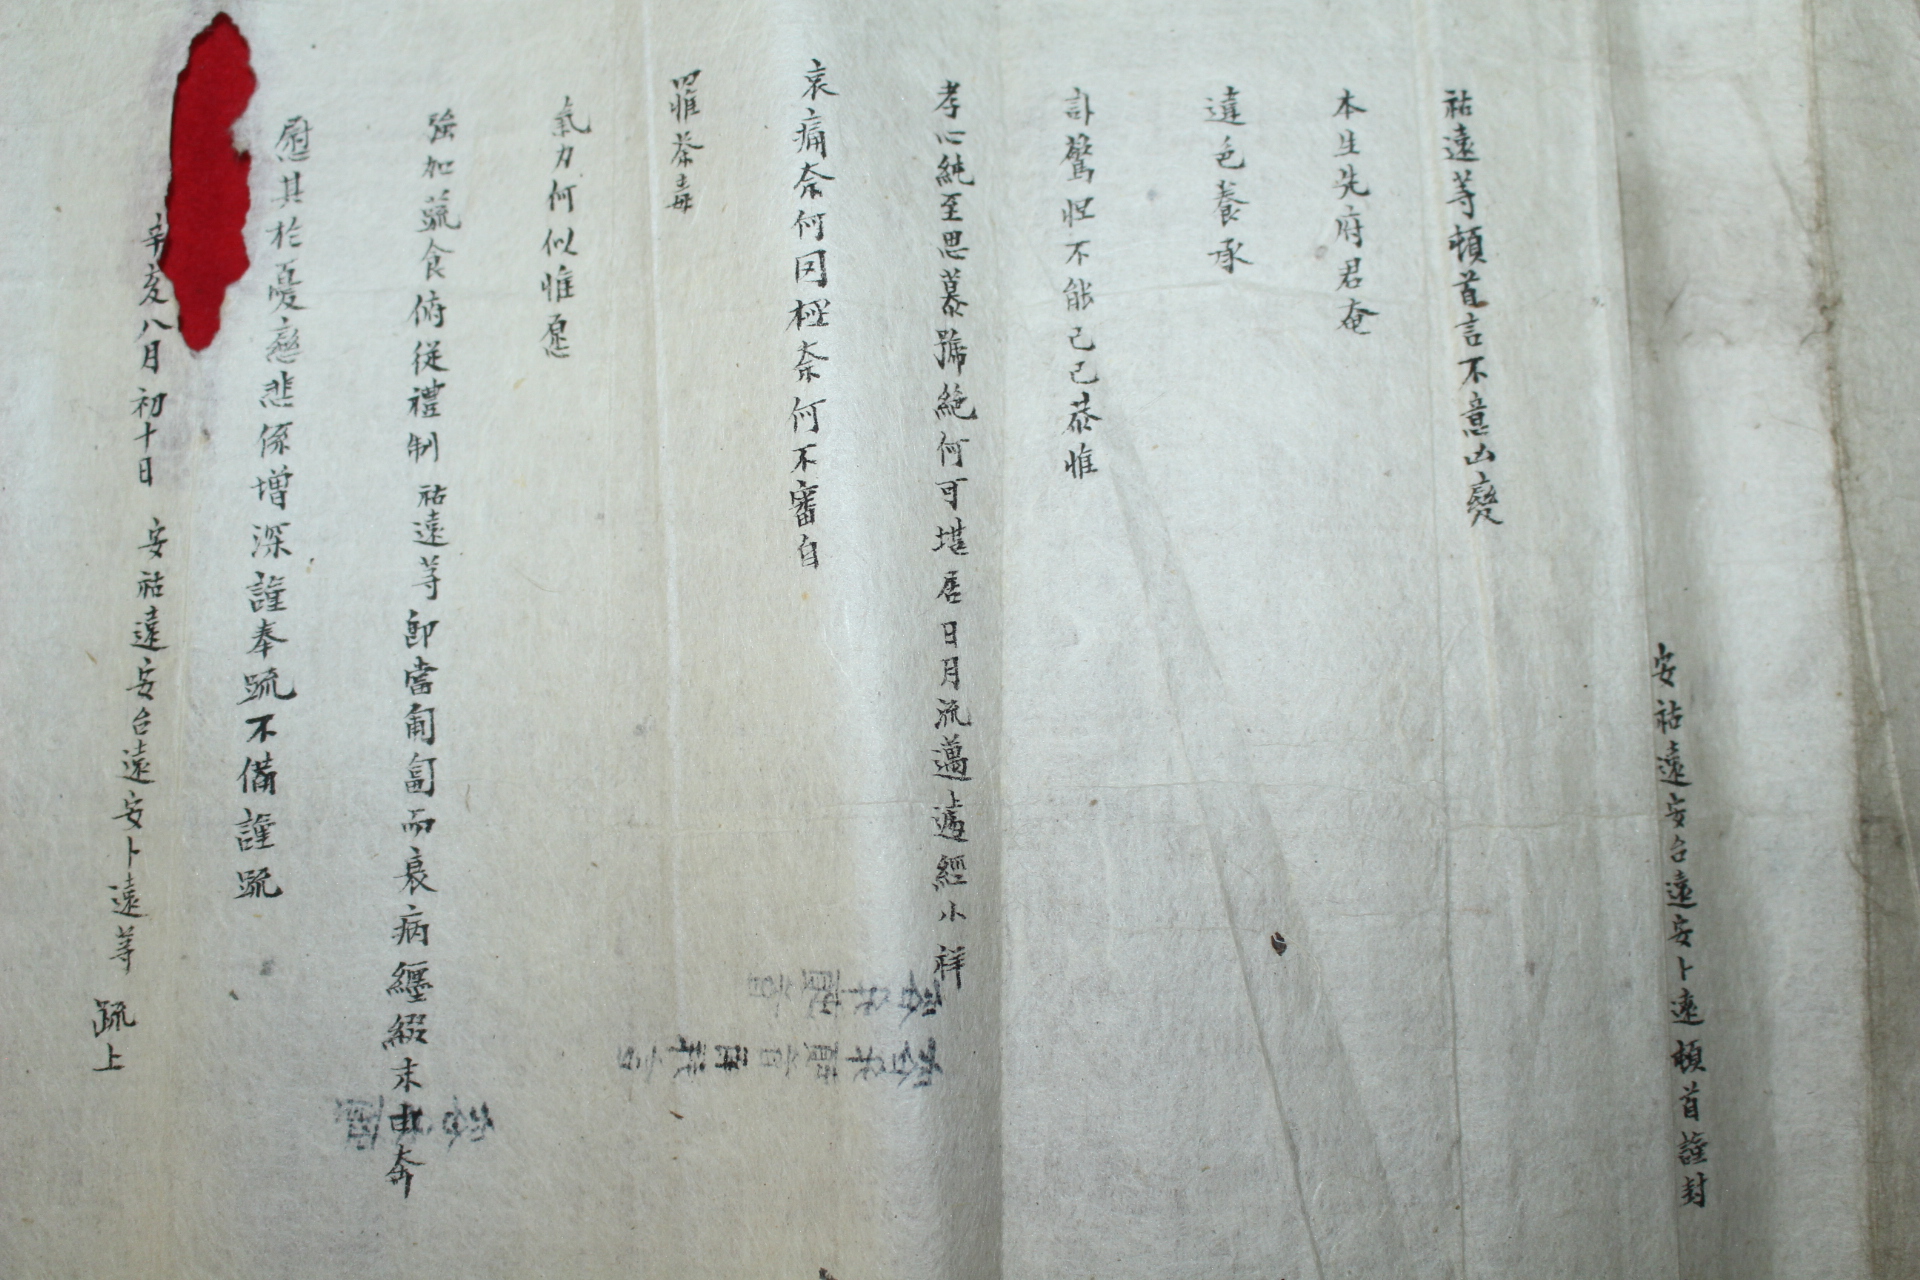 安祜遠安台遠安卜遠頓首謹封
祜遠等頓首言不意凶變
本生先府君奄
違色養承
訃驚怛不能已已恭惟
孝心純至思慕號絶何可堪居日月流邁遽經小祥
哀痛奈何罔極奈何不審自
罹荼毒
氣力何似惟愿
強加蔬食俯從禮制祜遠等卽當匍匐而衰病纏綴末由奔
慰其於憂戀悲係增深謹奉疏不備謹疏
辛亥八月初十日 安祜遠安台遠安卜遠等 疏上